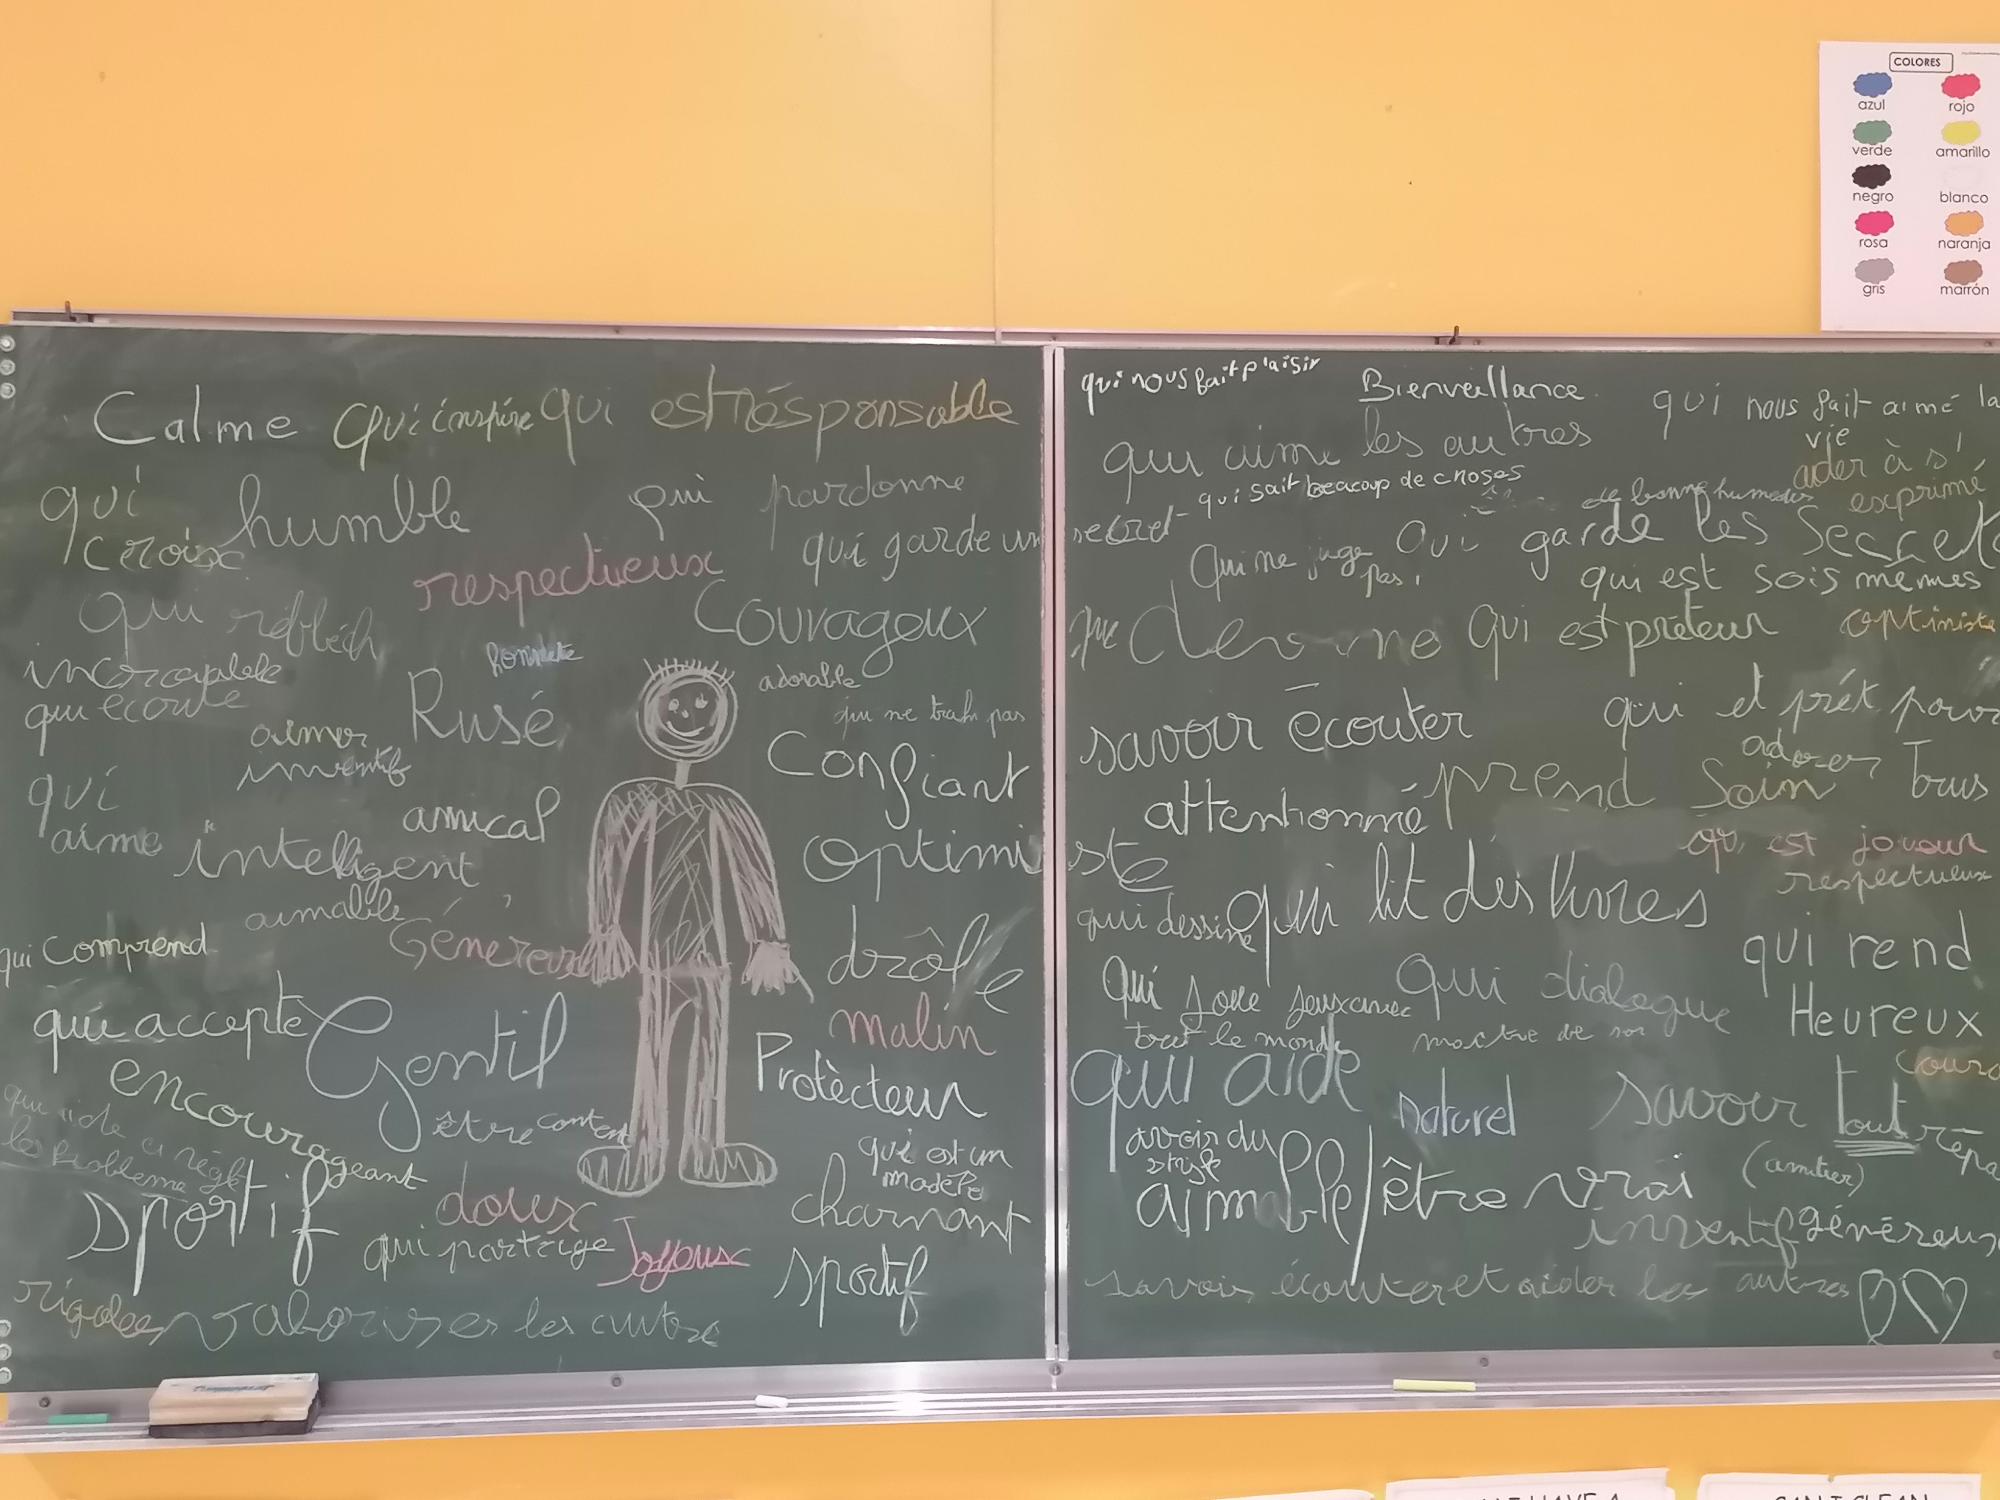 COLORES
azul
rojo
verde
amarillo
negro
blanco
rosa
naranja
gris
marrón
Calme
Qui inspire
qui est résponsable
qui
croix
humble
qui pardonne
respectueux
qui garde un secret
Couvageux
honnete
incroyable
qui écoute
Rusé
adorable
qui ne trahi pas
aimer
inventif
Confiant
qui
aime
amical
intelligent
optimiste
aimable
Généreux
qui comprend
drôle
malin
qui accepte
Gentil
Protècteur
encourageant
être content
qui est un
modèle
sportif
doux
charmant
qui partage
Joyeux
sportif
rigoler
valoriser les autre
qui nous fait plaisir
Bienveillance
qui nous fait aimé la
vie
qui aime les autres
qui sait beacoup de choses
ader à s'
exprimé
de bonne humeur
Qui ne juge
pas
Qui garde les secrets
qui est sois mêmes
qui est prèteur
optimiste
savoir écouter
qui et prét pour
adorer
Tous
attentionmé
prend Soin
qui est joueur
respectueux
qui dessine
qui lit des livres
qui rend
Heureux
Qui joue jeux avec
tout le monde
qui dialogue
maître de soi
qui aide
Naturel
savoir tout
avoir du
style
aimable
être vrai
(amitier)
inventif
généreux
savoir écouter et aider les autres
I HAVE A
CAN I CLEAN